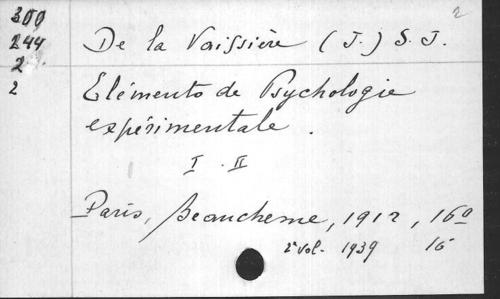 2
300
244
2
2
De la Vaissière (J.) S.J.
Elémento de Psychologie
expérimentale.
I . II
Paris, Beauchesne, 1912, 16º
2e vol. 1939 16